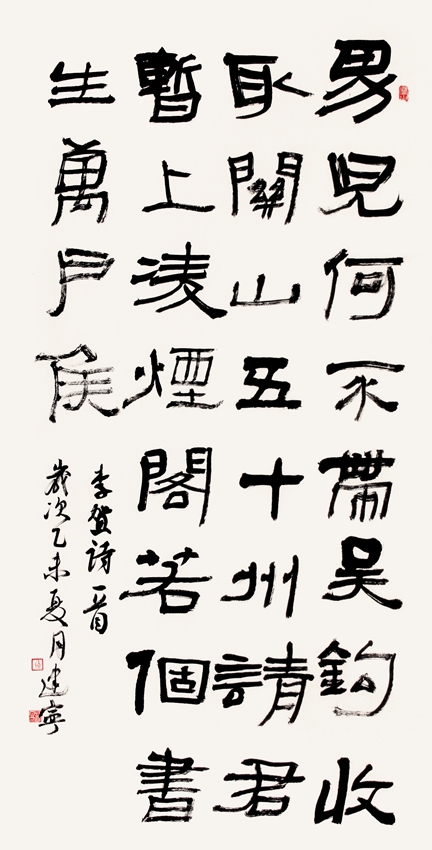 男兒何不帶吴鈎收
取關山五十州請君
暫上淩煙閣若個書
生萬户侯
李賀詩一首
歲次乙未夏月建寧